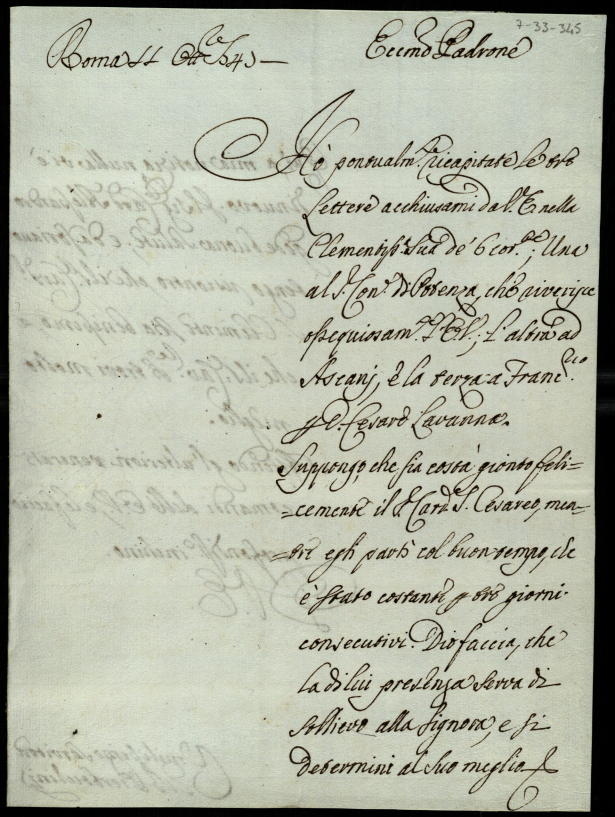 7-33-345
Roma 11 Ott.re 1745 Ecc.mo Padrone
Hò pontualm.te ricapitate le tre
Lettere acchiusami da V.E. nella
Clementiss.ma Sua de' 6 cor.te; Una
al S.r Con. di Potenza, che riverisce
ossequiosam.te V.E.; L'altra ad
Ascanj, e la terza a Franc.co
p D. Cesare Lavanna.
Suppongo, che sia costà gionto feli=
=cemente il S.r Card.l S. Cesareo, men=
=tre egli partì col buon tempo, che
è stato costante p tre giorni
consecutivi. Dio faccia, che
la di lui presenza serva di
sollievo alla Signora, e si
determini al suo meglio